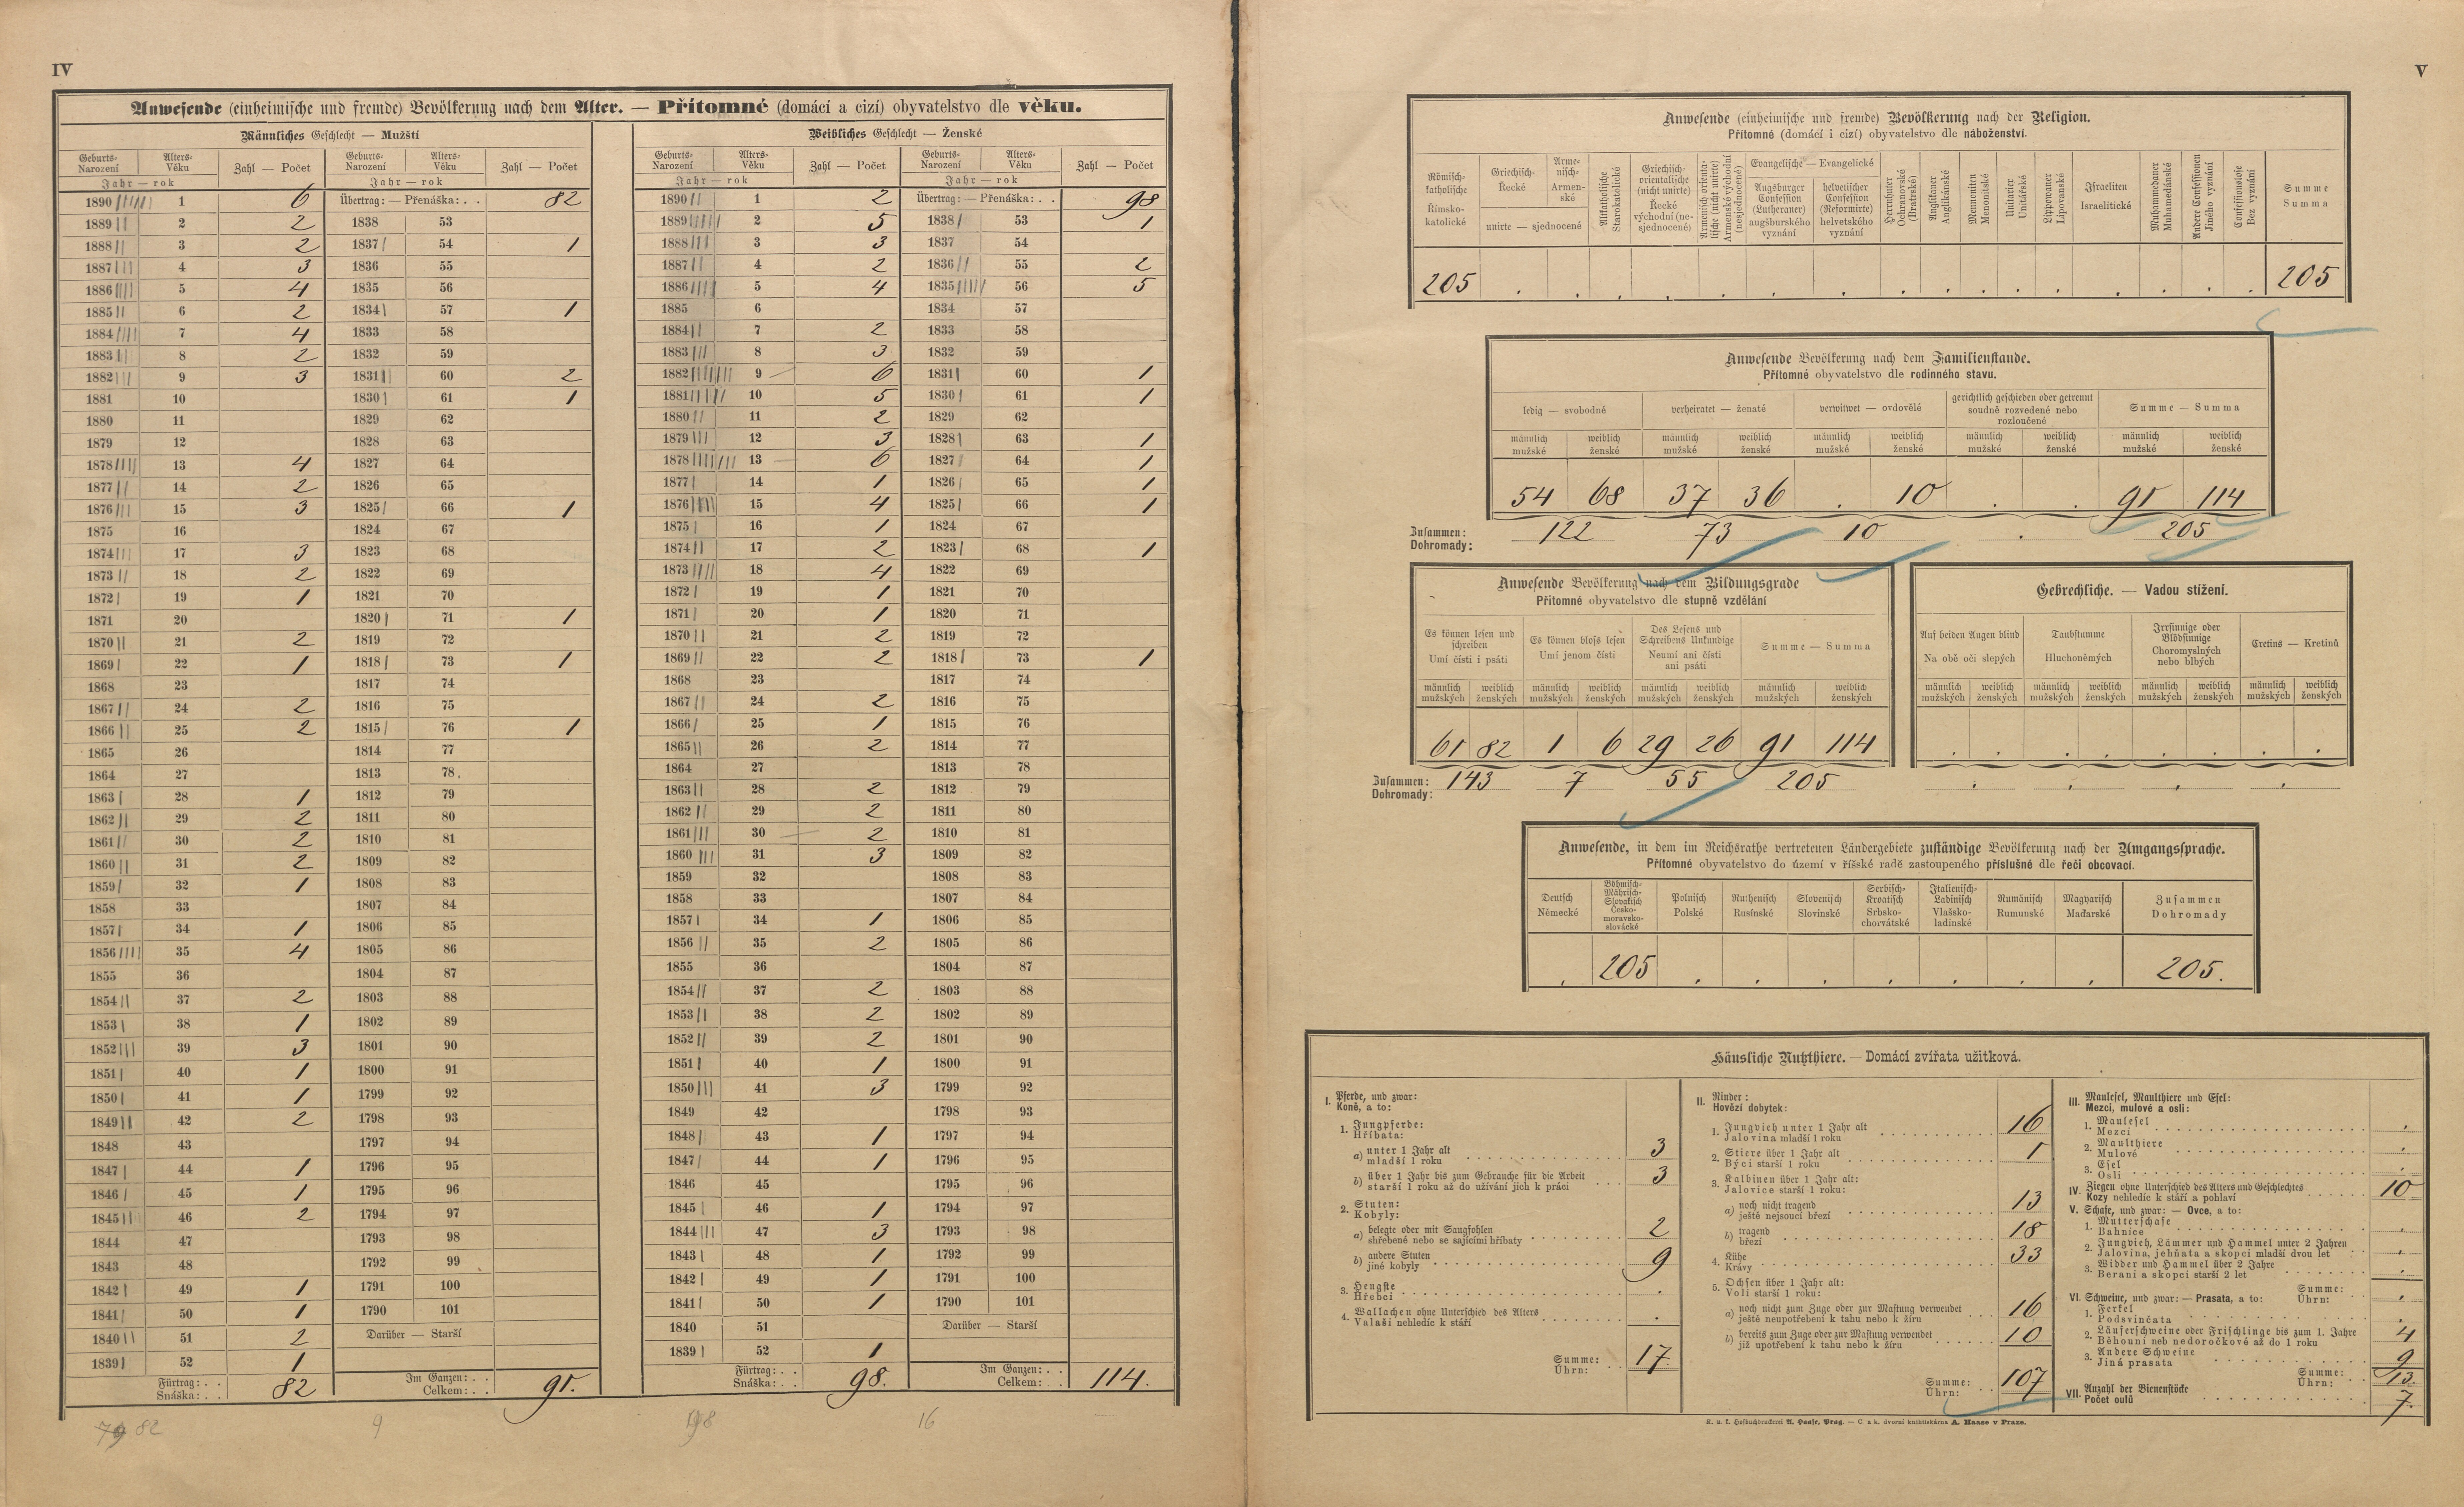 IV
Anwesende (einheimische und fremde) Bevölkerung nach dem Alter. — Přítomné (domácí a cizí) obyvatelstvo dle věku.
Männliches Geschlecht — Mužští
Geburts- Narození Alters- Věku Zahl — Počet Geburts- Narození Alters- Věku Zahl — Počet
Jahr — rok Jahr — rok
1890 1 6 Übertrag: — Přenáška: . . 82
1889 2 2 1838 53
1888 3 2 1837 54 1
1887 4 3 1836 55
1886 5 4 1835 56
1885 6 2 1834 57 1
1884 7 4 1833 58
1883 8 2 1832 59
1882 9 3 1831 60 2
1881 10 1830 61 1
1880 11 1829 62
1879 12 1828 63
1878 13 4 1827 64
1877 14 2 1826 65
1876 15 3 1825 66 1
1875 16 1824 67
1874 17 3 1823 68
1873 18 2 1822 69
1872 19 1 1821 70
1871 20 1820 71 1
1870 21 2 1819 72
1869 22 1 1818 73 1
1868 23 1817 74
1867 24 2 1816 75
1866 25 2 1815 76 1
1865 26 1814 77
1864 27 1813 78
1863 28 1 1812 79
1862 29 2 1811 80
1861 30 2 1810 81
1860 31 2 1809 82
1859 32 1 1808 83
1858 33 1807 84
1857 34 1 1806 85
1856 35 4 1805 86
1855 36 1804 87
1854 37 2 1803 88
1853 38 1 1802 89
1852 39 3 1801 90
1851 40 1 1800 91
1850 41 1 1799 92
1849 42 2 1798 93
1848 43 1797 94
1847 44 1 1796 95
1846 45 1 1795 96
1845 46 2 1794 97
1844 47 1793 98
1843 48 1792 99
1842 49 1 1791 100
1841 50 1 1790 101
1840 51 2 Darüber — Starší
1839 52 1
Fürtrag: . . Snáška: . . 82 Im Ganzen: . . Celkem: . . 91.
82 9
Weibliches Geschlecht — Ženské
Geburts- Narození Alters- Věku Zahl — Počet Geburts- Narození Alters- Věku Zahl — Počet
Jahr — rok Jahr — rok
1890 1 2 Übertrag: — Přenáška: . . 98
1889 2 5 1838 53 1
1888 3 3 1837 54
1887 4 2 1836 55 2
1886 5 4 1835 56 5
1885 6 1834 57
1884 7 2 1833 58
1883 8 3 1832 59
1882 9 6 1831 60 1
1881 10 5 1830 61 1
1880 11 2 1829 62
1879 12 3 1828 63 1
1878 13 6 1827 64 1
1877 14 1 1826 65 1
1876 15 4 1825 66 1
1875 16 1 1824 67
1874 17 2 1823 68 1
1873 18 4 1822 69
1872 19 1 1821 70
1871 20 1 1820 71
1870 21 2 1819 72
1869 22 2 1818 73 1
1868 23 1817 74
1867 24 2 1816 75
1866 25 1 1815 76
1865 26 2 1814 77
1864 27 1813 78
1863 28 2 1812 79
1862 29 2 1811 80
1861 30 2 1810 81
1860 31 3 1809 82
1859 32 1808 83
1858 33 1807 84
1857 34 1 1806 85
1856 35 2 1805 86
1855 36 1804 87
1854 37 2 1803 88
1853 38 2 1802 89
1852 39 2 1801 90
1851 40 1 1800 91
1850 41 3 1799 92
1849 42 1798 93
1848 43 1 1797 94
1847 44 1 1796 95
1846 45 1795 96
1845 46 1 1794 97
1844 47 3 1793 98
1843 48 1 1792 99
1842 49 1 1791 100
1841 50 1 1790 101
1840 51 Darüber — Starší
1839 52 1
Fürtrag: . . Snáška: . . 98. Im Ganzen: . . Celkem: . . 114.
98 16
V
Anwesende (einheimische und fremde) Bevölkerung nach der Religion.
Přítomné (domácí i cizí) obyvatelstvo dle náboženství.
Römisch-katholische Římsko-katolické
Griechisch- Řecké
Armenisch- Armenské
unirte — sjednocené
Altkatholische Starokatolické
Griechisch-orientalische (nicht unirte) Řecké východní (nesjednocené)
Armenisch orientalische (nicht unirte) Armenské východní (nesjednocené)
Evangelische — Evangelické
Augsburger Confession (Lutheraner) augšburského vyznání
helvetischer Confession (Reformirte) helvetského vyznání
Herrnhuter Ochranovské (Bratrské)
Anglikaner Anglikánské
Mennoniten Menonitské
Unitarier Unitářské
Lippowaner Lipovanské
Israeliten Israelitické
Muhamedaner Muhamedánské
Andere Confessionen Jiného vyznání
Confessionslose Bez vyznání
Summe Summa
205 . . . . . . . . . . . . . . . . . 205
Anwesende Bevölkerung nach dem Familienstande.
Přítomné obyvatelstvo dle rodinného stavu.
ledig — svobodné verheiratet — ženaté verwitwet — ovdovělé gerichtlich geschieden oder getrennt soudně rozvedené nebo rozloučené Summe — Summa
männlich mužské weiblich ženské männlich mužské weiblich ženské männlich mužské weiblich ženské männlich mužské weiblich ženské männlich mužské weiblich ženské
54 68 37 36 . 10 . . 91 114
Zusammen: Dohromady: 122 73 10 . 205
Anwesende Bevölkerung nach dem Bildungsgrade
Přítomné obyvatelstvo dle stupně vzdělání
Es können lesen und schreiben Umí čísti i psáti
Es können bloss lesen Umí jenom čísti
Des Lesens und Schreibens Unkundige Neumí ani čísti ani psáti
Summe — Summa
männlich mužských weiblich ženských männlich mužských weiblich ženských männlich mužských weiblich ženských männlich mužských weiblich ženských
61 82 1 6 29 26 91 114
Zusammen: Dohromady: 143 7 55 205
Gebrechliche. — Vadou stižení.
Auf beiden Augen blind Na obě oči slepých
Taubstumme Hluchoněmých
Irrsinnige oder Blödsinnige Choromyslných nebo blbých
Cretins — Kretinů
männlich mužských weiblich ženských männlich mužských weiblich ženských männlich mužských weiblich ženských männlich mužských weiblich ženských
. . . . . . . .
. . . .
Anwesende, in dem im Reichsrathe vertretenen Ländergebiete zuständige Bevölkerung nach der Umgangssprache.
Přítomné obyvatelstvo do území v říšské radě zastoupeného příslušné dle řeči obcovací.
Deutsch Německé
Böhmisch-Mährisch-Slovakisch Česko-moravsko-slovácké
Polnisch Polské
Ruthenisch Rusínské
Slovenisch Slovinské
Serbisch-Kroatisch Srbsko-chorvátské
Italienisch-Ladinisch Vlašsko-ladinské
Rumänisch Rumunské
Magyarisch Maďarské
Zusammen Dohromady
. 205 . . . . . . . 205.
Häusliche Nutzthiere. — Domácí zvířata užitková.
I. Pferde, und zwar:
Koně, a to:
1. Jungpferde:
Hříbata:
a) unter 1 Jahr alt
mladší 1 roku 3
b) über 1 Jahr bis zum Gebrauche für die Arbeit
starší 1 roku až do užívání jich k práci 3
2. Stuten:
Kobyly:
a) belegte oder mit Saugfohlen
shřebené nebo se sajícími hříbaty 2
b) andere Stuten
jiné kobyly 9
3. Hengste
Hřebci .
4. Wallachen ohne Unterschied des Alters
Valaši nehledíc k stáří .
Summe: Úhrn: 17
II. Rinder:
Hovězí dobytek:
1. Jungvieh unter 1 Jahr alt
Jalovina mladší 1 roku 16
2. Stiere über 1 Jahr alt
Býci starší 1 roku 1
3. Kalbinen über 1 Jahr alt:
Jalovice starší 1 roku:
a) noch nicht tragend
ještě nejsoucí březí 13
b) tragend
březí 18
4. Kühe
Krávy 33
5. Ochsen über 1 Jahr alt:
Voli starší 1 roku:
a) noch nicht zum Zuge oder zur Mastung verwendet
ještě neupotřebení k tahu nebo k žíru 16
b) bereits zum Zuge oder zur Mastung verwendet
již upotřebení k tahu nebo k žíru 10
Summe: Úhrn: 107
III. Maulesel, Maulthiere und Esel:
Mezci, mulové a osli:
1. Maulesel
Mezci .
2. Maulthiere
Mulové .
3. Esel
Osli .
IV. Ziegen ohne Unterschied des Alters und Geschlechtes
Kozy nehledíc k stáří a pohlaví 10
V. Schafe, und zwar: — Ovce, a to:
1. Mutterschafe
Bahnice .
2. Jungvieh, Lämmer und Hammel unter 2 Jahren
Jalovina, jehňata a skopci mladší dvou let .
3. Widder und Hammel über 2 Jahre
Berani a skopci starší 2 let .
Summe: Úhrn: .
VI. Schweine, und zwar: — Prasata, a to:
1. Ferkel
Podsvinčata .
2. Läuferschweine oder Frischlinge bis zum 1. Jahre
Běhouni neb nedoročkové až do 1 roku 4
3. Andere Schweine
Jiná prasata 9
Summe: Úhrn: 13.
VII. Anzahl der Bienenstöcke
Počet oulů 7.
K. u. k. Hofbuchdruckerei A. Haase, Prag. — C. a k. dvorní knihtiskárna A. Haase v Praze.